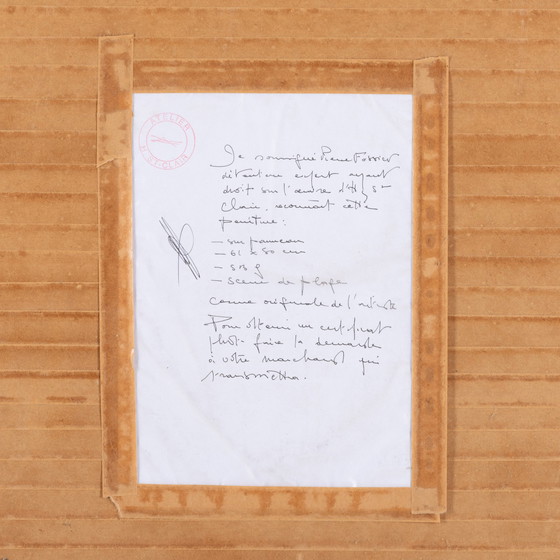 ATELIER
H. ST CLAIR
Je soussigné Pierre
détenteur expert ayant
droit sur l'œuvre d'H St
Clair, reconnait cette
peinture:
— sur panneau
— 61 x 50 cm
— g
— scène de plage
comme originale de l'artiste
Pour obtenir un certificat
photo faire la demande
à votre marchand qui
transmettra.